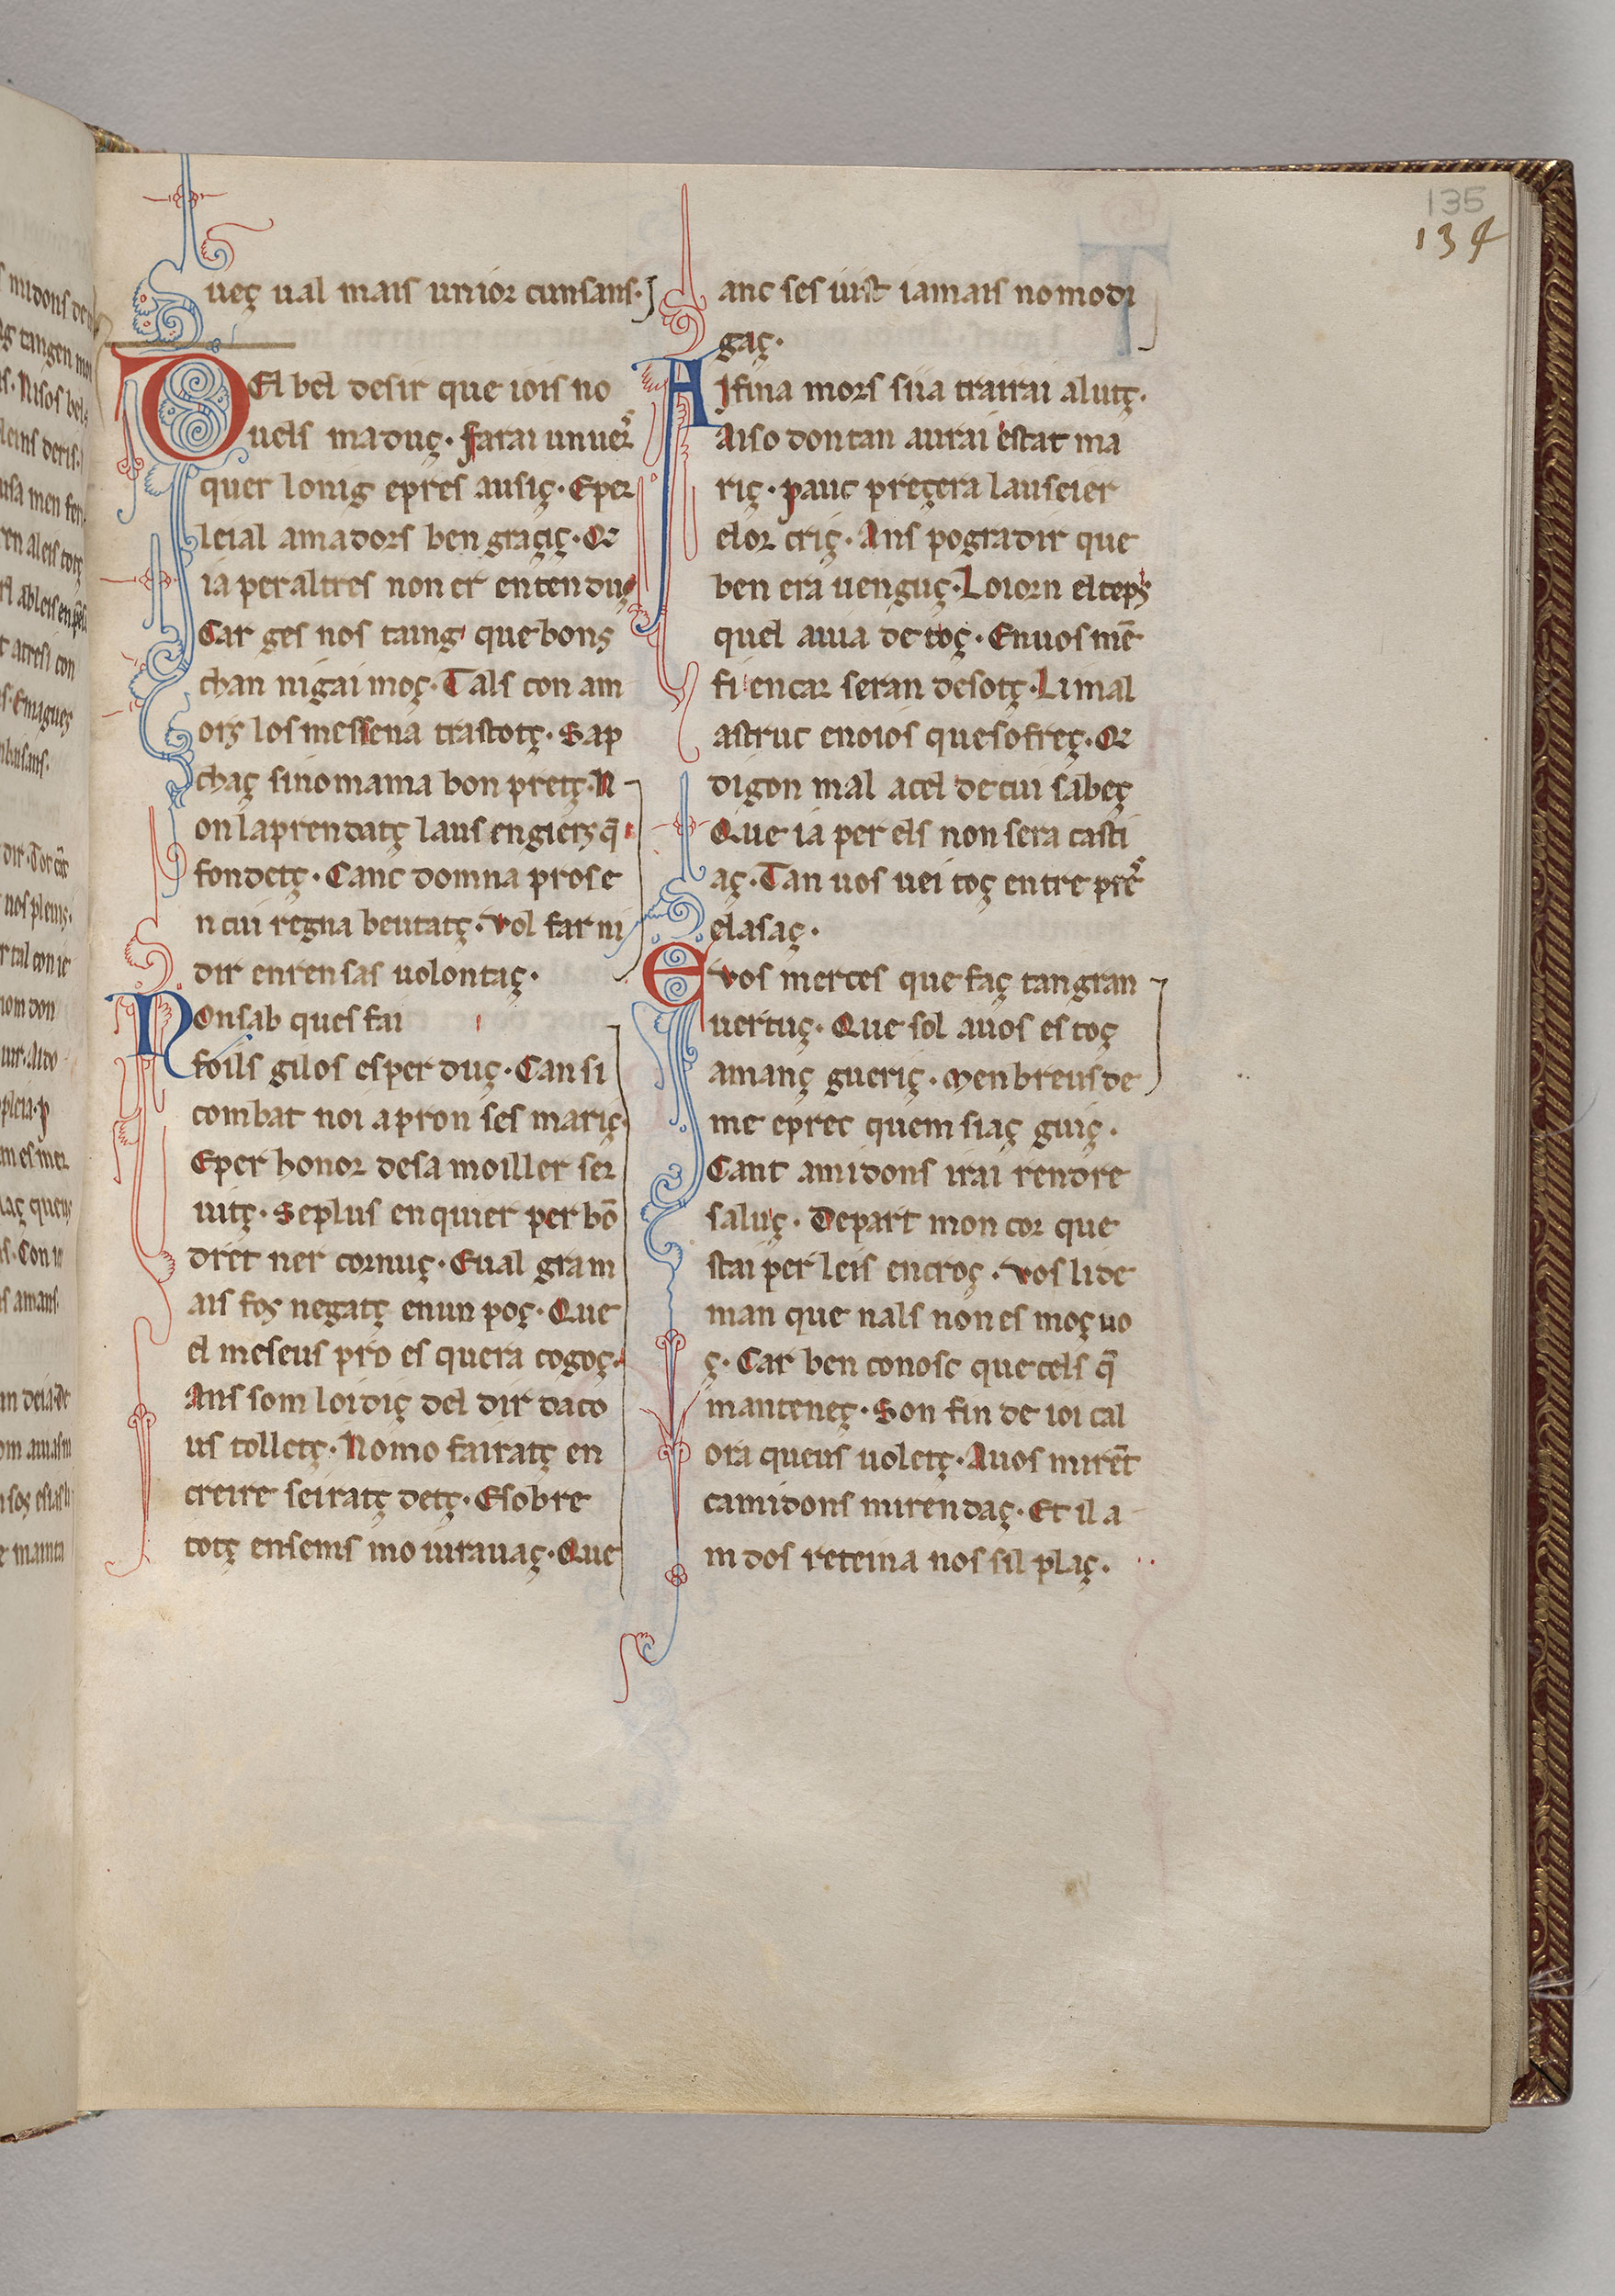 135
134
ueç ual mais unior cunsans·
DEl bel desir que iois no
uels maduç· farai unuers
quer lonig epres ausiç· Eper
leial amadors ben graçiç· Or
ia peraltres non er entenduç
Car ges nos taing quebons
chan nigai moç· Tals con am
ors los messena trastotç· Sap
chaç sinomama bon pretç· N
on laprendatç laus engiers q̄
fondetç· Canc domna prose
n cui regna beutatç· vol far ni
dir enren sas uolontaç·
Nonsab ques fai
foils gilos esperduç· Can si
combat noi apron ses mariç·
Eper honor desa moiller ser
uitç· Seplus enquier per bō
dret ner cornuç· Eual gram
ais fos negatç enun poç· Que
el meseus pro es quera cogoç·
Ans som loidiç del dir daco
us tolletç· Nomo fairatç en
creire seiratç detç· Esobre
totç ensems mo iurauaç· Que
anc ses iuist iamais nomodi
gaç·
Aifina mors sua trairai alutç·
Aiso dontan aurai estat ma
riç· pauc preçera lauseier
elor criç· Ans pogradir que
ben era uenguç· Loiorn elteps
quel auia de toç· Enuos mē
fi encar seran desotç· Li mal
astruc enoios quesofreç· Or
digon mal acel decui sabeç
Que ia per els non sera casti
aç· Tan uos uei toç entre pres
elasaç·
Evos merces que faç tangran
uertuç· Que sol auos es toç
amanç gueriç· Menbreus de
me eprec quem siaç guiç·
Cant amidons irai rendre
saluç· Depart mon cor que
stai per leis encroç· vos li de
man que nals non es moç uo
ç· Car ben conosc que cels q̄
manteneç· Son fin de ioi cal
ora queus uoletç· Auos mirēt
camidons mirendaç· Et il a
m dos reteina nos sil plaç·